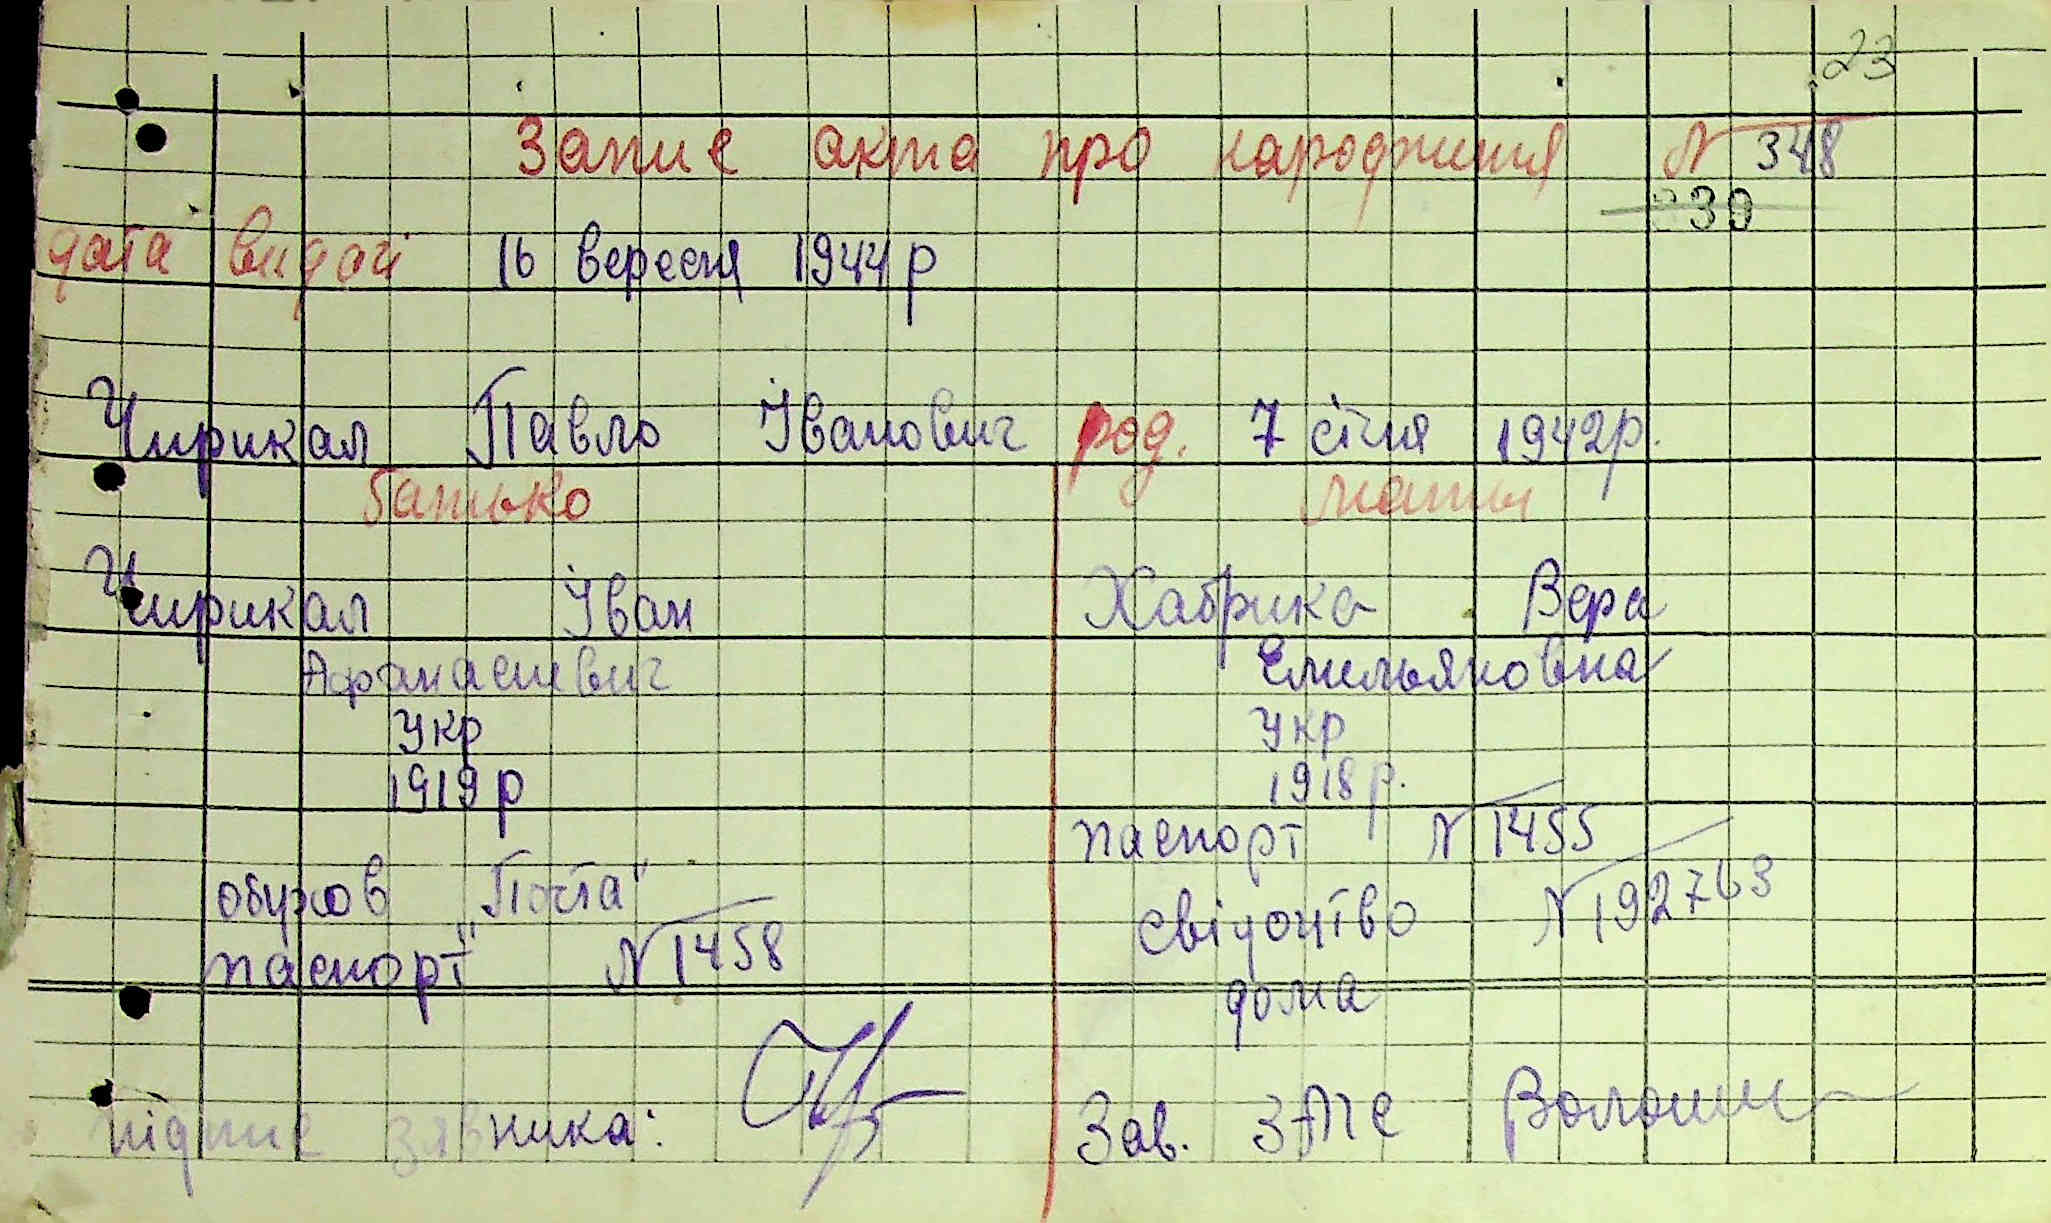 23
Запис акта про народження N 348
39
дата видачі 16 вересня 1944 р
Чирикал Павло Іванович род. 7 січня 1942 р.
батько мати
Чирикал Іван Хабрика Вера
Афанасиевич Емельяновна
укр укр
1919 р 1918 р.
паспорт N 1455
обухов "Почта" свідоцтво N 192763
паспорт N 1458
дома
підпис заявника:
Зав. ЗАГС Волошин